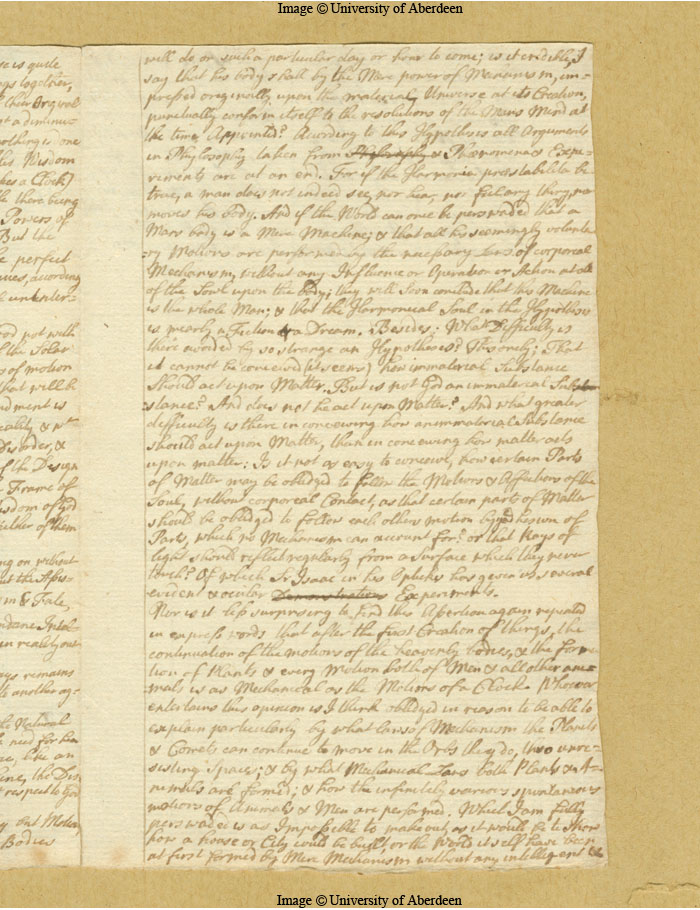 Image © University of Aberdeen
se is quite
ngs together,
nothing is one
his Wisdom
akes a Clock)
there being
Powers of
But the
perfect
ues, according
put with
the Solar
s of motion
that will be
ndment is
Disorder, &
of the Design
Frame of
isdom of God
either of them
ng on without
m & Fate,
in reality out
ys remains
to another ag-
Natural
need for him
ine, the Dis
t respect to God
ry out Motion
Bodies
will do on such a particular day or hour to come; is it credible, I
say that his body shall by the Mere power of Mechanism, im-
pressed originally upon the material Universe at its Creation,
punctually conform itself to the resolutions of the Mans Mind at
the time Appointed? According to this Hypothesis all Arguments
in Philosophy taken from Philosophy & Phænomena & Expe-
riments are at an end. For if the Harmonia præstabilita be
true, a man does not indeed see, nor hear, nor feel any thing, no
moves his body. And if the World can once be perswaded that a
Mans body is a Mere Machine; & that all his seemingly volunta-
ry Motions are performed by the necessary Laws of corporeal
Mechanism, without any Influence or Operation or Action at all
of the Soul upon the body; they will soon conclude that this Machine
is the whole Man; & that the Harmonical Soul in the Hypothesis
is mearly a Fiction & a Dream. Besides; What Difficulty is
there avoided by so strange an Hypothesis? This only; That
it cannot be conceived (it seems) how immaterial Substance
should act upon Matter. But is not God an immaterial Sub
stance? And does not he act upon Matter? And what greater
difficulty is there in conceiving how an immaterial Substance
should act upon Matter, than in conceiving how matter acts
upon matter: Is it not as easy to conceive, how certain Parts
of Matter may be obliged to follow the Motions & Affections of the
Soul, without corporeal Contact, as that certain parts of Matter
should be obliged to follow each others motion by adhesion of
Parts, which no Mechanism can account for; or that Rays of
light should reflect regularly from a surface which they never
touch? Of which Sr. Isaac in his Opticks has given us several
evident & ocular Demonstrations Experiments.
Nor is it less surprising to find this Assertion again repeated
in express words that after the first Creation of things, the
continuation of the motions of the heavenly bodies, & the forma
tion of Plants & every motion both of Men & all other ani-
mals is as Mechanical as the Motions of a Clock. Whoever
entertains this opinion is I think obliged in reason to be able to
explain particularly by what laws of Mechanism the Planets
& Comets can continue to move in the Orbs they do, thro unre-
sisting Spaces; & by what Mechanical Laws both Plants & A-
nimals are formed; & how the infinitely various spontaneous
motions of Animals & Men are performed. Which I am fully
perswaded is as Impossible to make out, as it would be to show
how a house or City could be built, or the World it self have been
at first formed by Mere Mechanism without any intelligent &
Image © University of Aberdeen